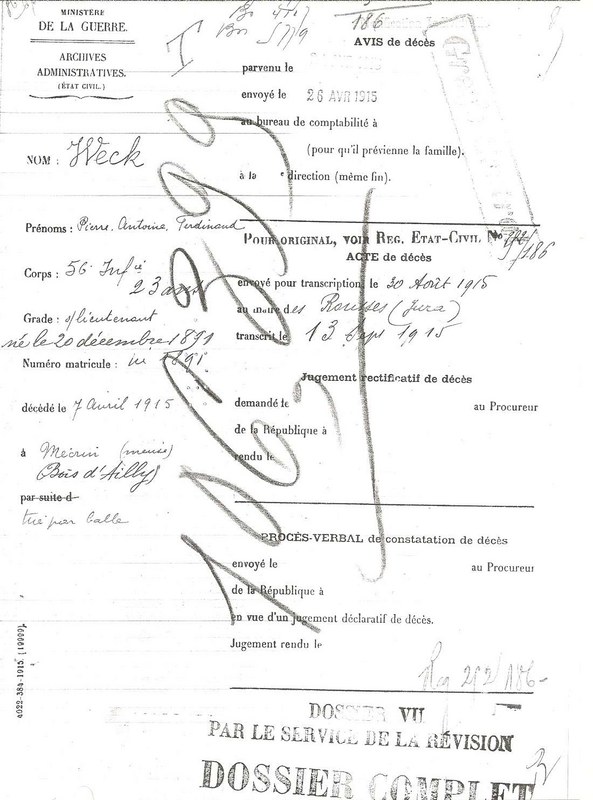 MINISTÈRE
DE LA GUERRE.
ARCHIVES
ADMINISTRATIVES.
(ÉTAT CIVIL.)
NOM : Weck
Prénoms : Pierre, Antoine, Ferdinand
Corps : 56e Infie
23 ans
Grade : s/lieutenant
né le 20 décembre 1891
Numéro matricule :
décédé le 7 Avril 1915
à Mécrin (meuse)
(Bois d'Ailly)
par suite d
tué par balle
4022-384-1915. [19999].
186
AVIS de décès
parvenu le
envoyé le 26 AVR 1915
au bureau de comptabilité à
(pour qu'il prévienne la famille).
à la e direction (même fin).
POUR ORIGINAL, VOIR REG. ETAT-CIVIL No
186
ACTE de décès
envoyé pour transcription le 30 Août 1915
au maire des Rousses (Jura)
transcrit le 13 Sept 1915
Jugement rectificatif de décès
demandé le au Procureur
de la République à
rendu le
PROCÈS-VERBAL de constatation de décès
envoyé le au Procureur
de la République à
en vue d'un jugement déclaratif de décès.
Jugement rendu le
Reg 212/186
DOSSIER VU
PAR LE SERVICE DE LA RÉVISION
DOSSIER COMPLET